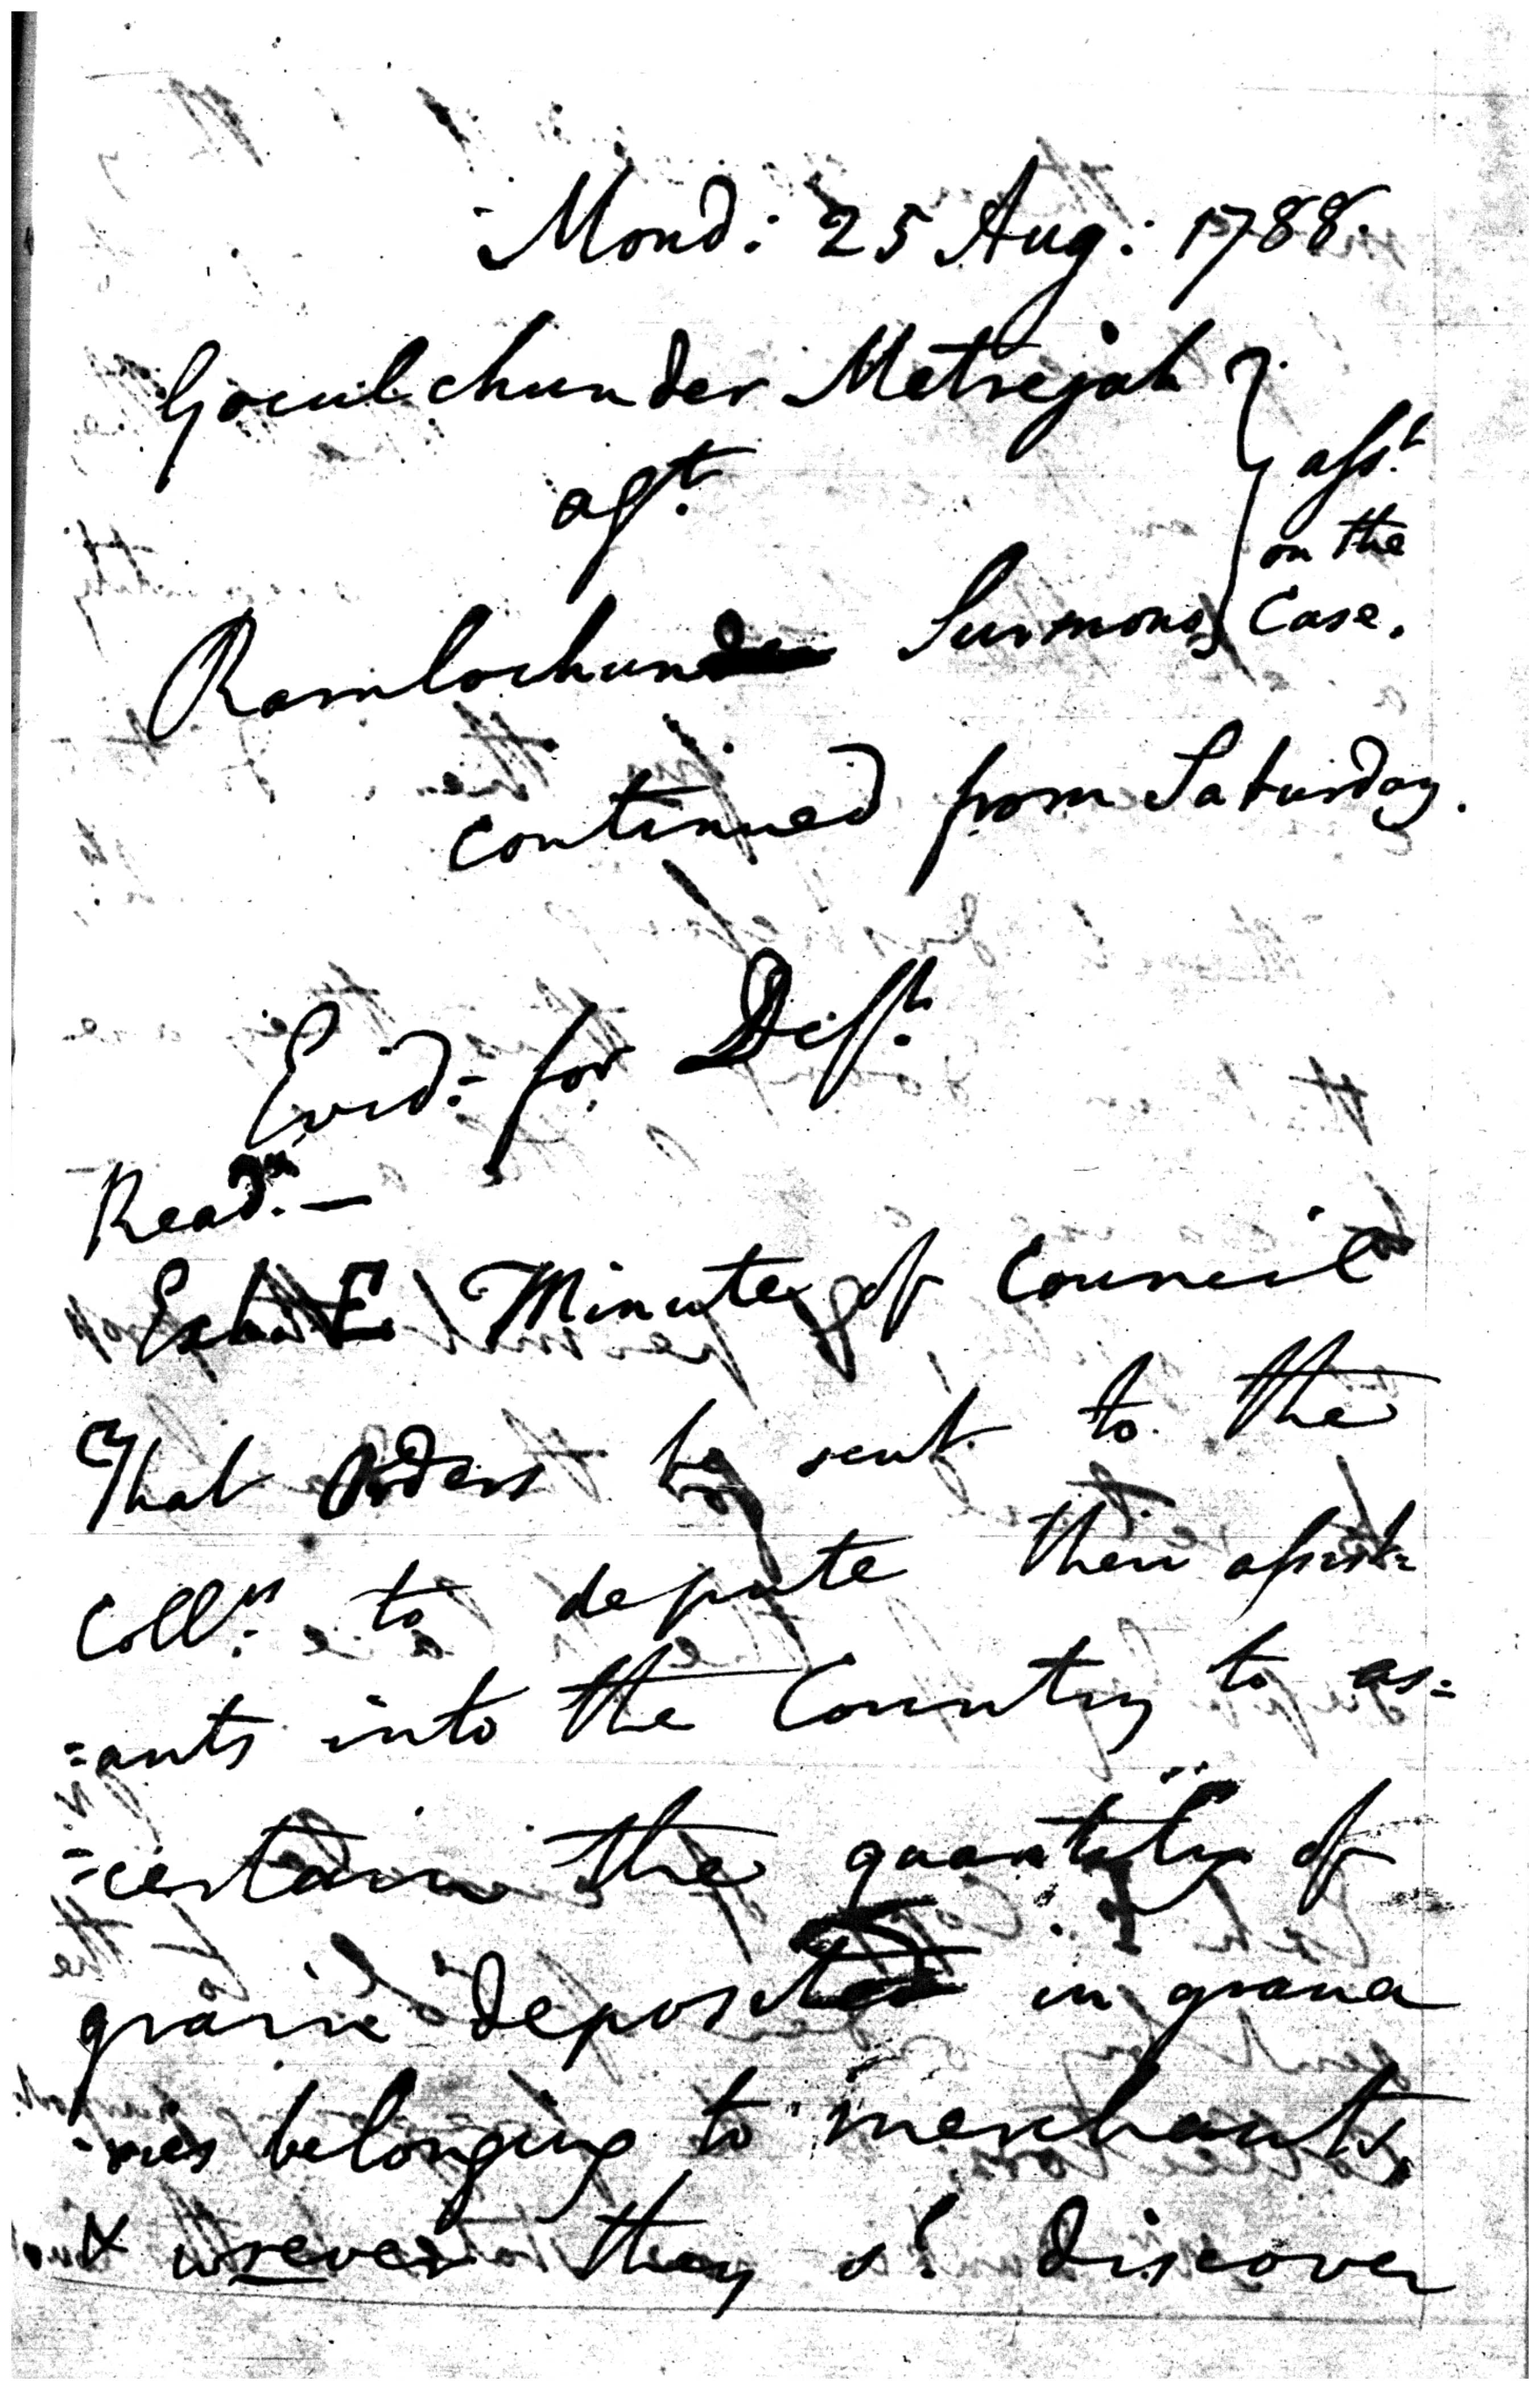 Mond: 25 Aug: 1788.
Gocul chunder Metrejah
agt.
asst.
on the
Ramlochun Surmono Case.
continued from Saturday.
Evid: for Deft.
Read. —
Exh. E. Minutes of Council
That Orders be sent to the
Collrs. to depute their assist=
=ants into the Country to as=
=certain the quantity of
grain deposited in grana
=ries belonging to merchants,
& wherever they sd. discover